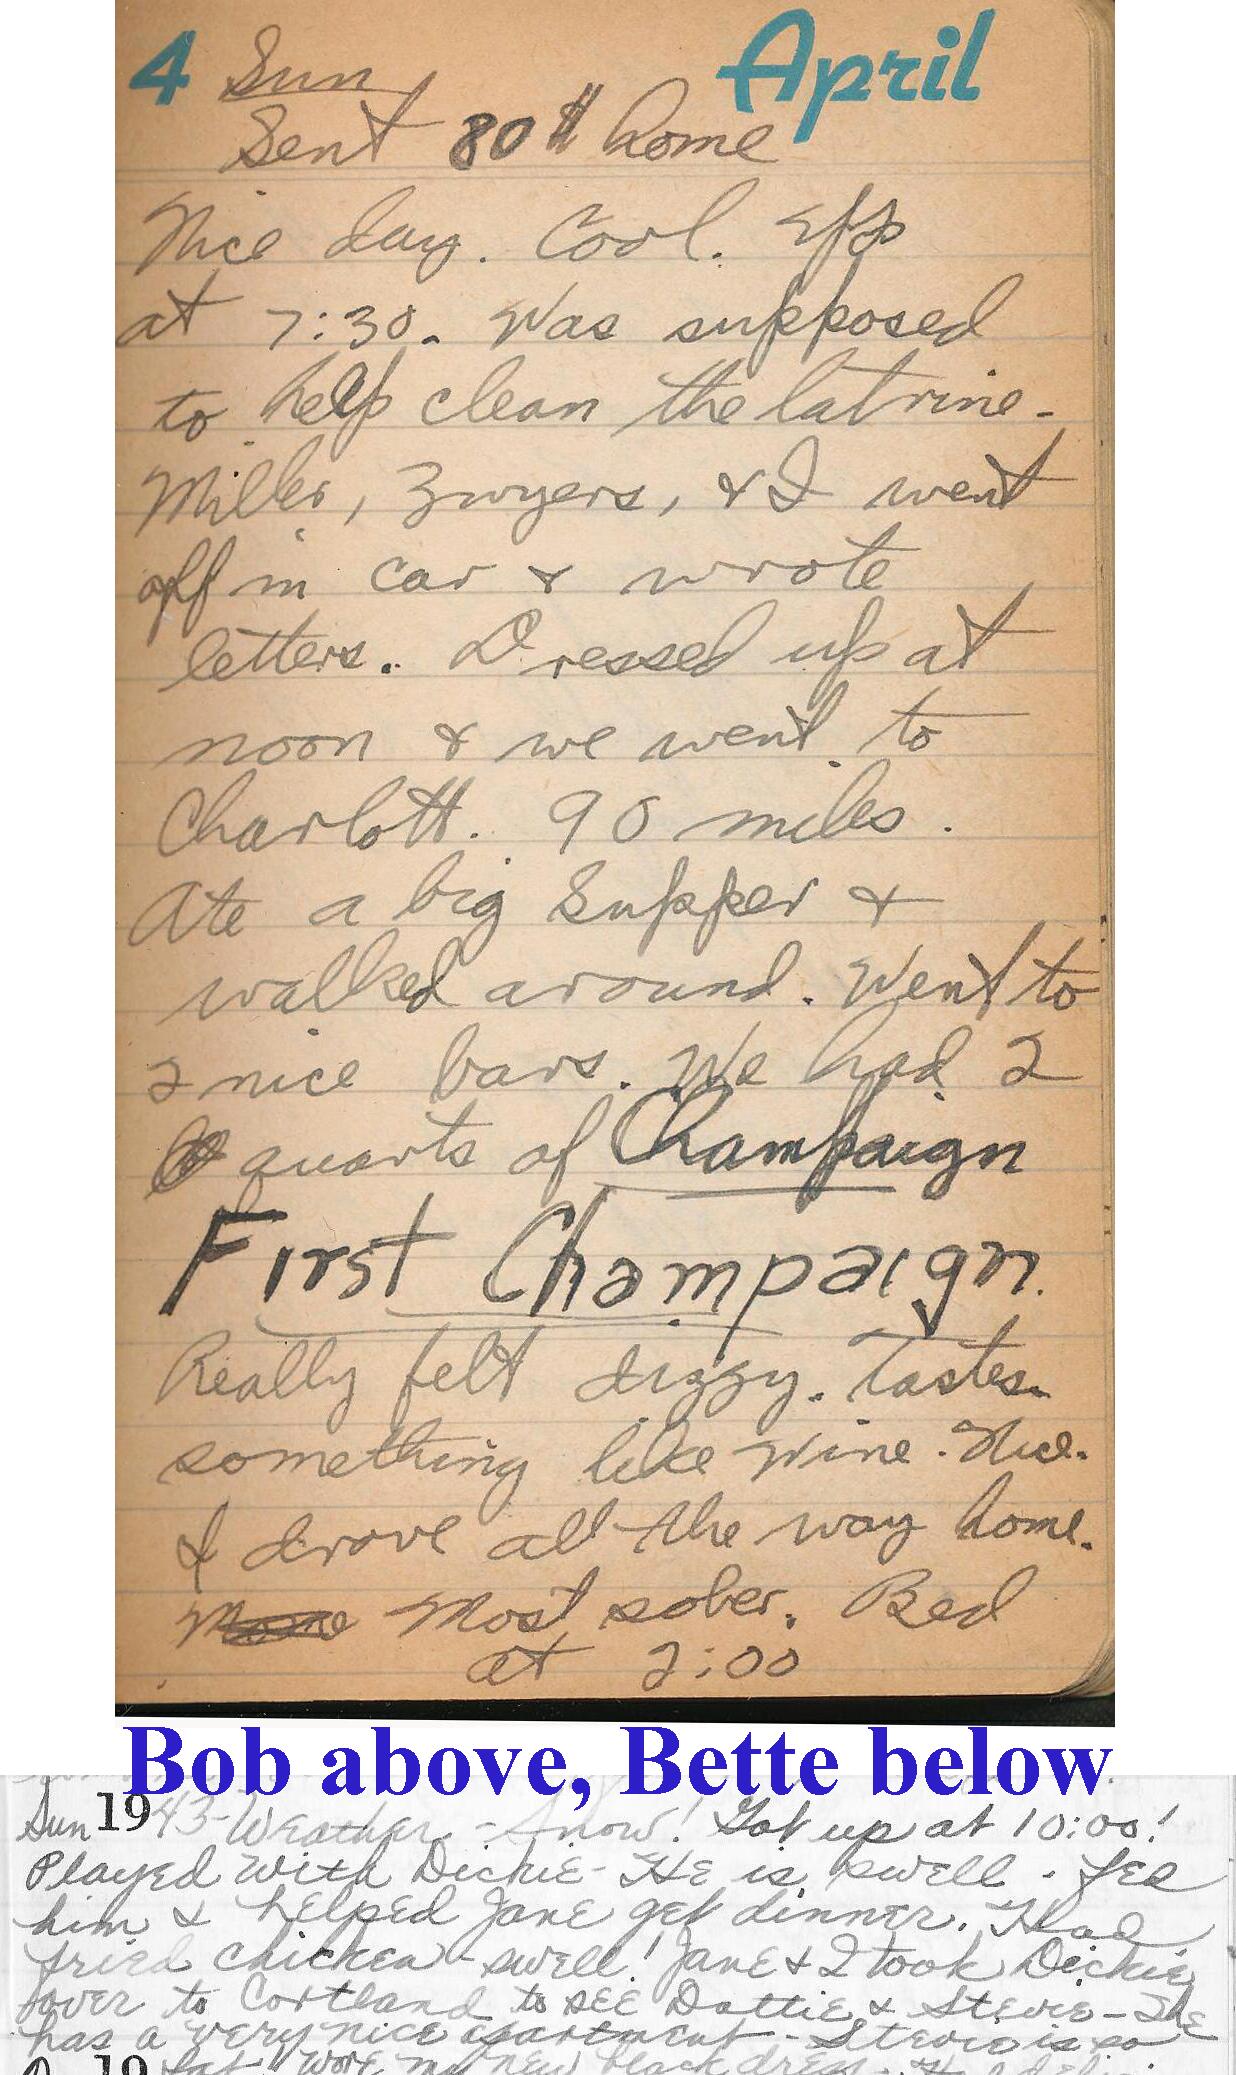 4 Sun April
Sent 80 $ home
Nice day. Cool. Up
at 7:30. Was supposed
to help clean the latrine.
Miller, Zwyers, & I went
off in car & wrote
letters. Dressed up at
noon & we went to
Charlott. 90 miles.
Ate a big Supper &
walked around. Went to
2 nice bars. We had 2
quarts of Champaign
First Champaign.
Really felt dizzy. Tastes
something like wine. Nice.
I drove all the way home.
Most sober. Bed
at 2:00
Bob above, Bette below
Sun 1943 - Weather - Snow! Got up at 10:00!
Played with Dickie - He is swell - Fed
him & helped Jane get dinner. Had
fried chicken - swell! Jane & I took Dickie
over to Cortland to see Dottie & Stevie - She
has a very nice apartment - Stevie is so
19 fat! Wore my new black dress -